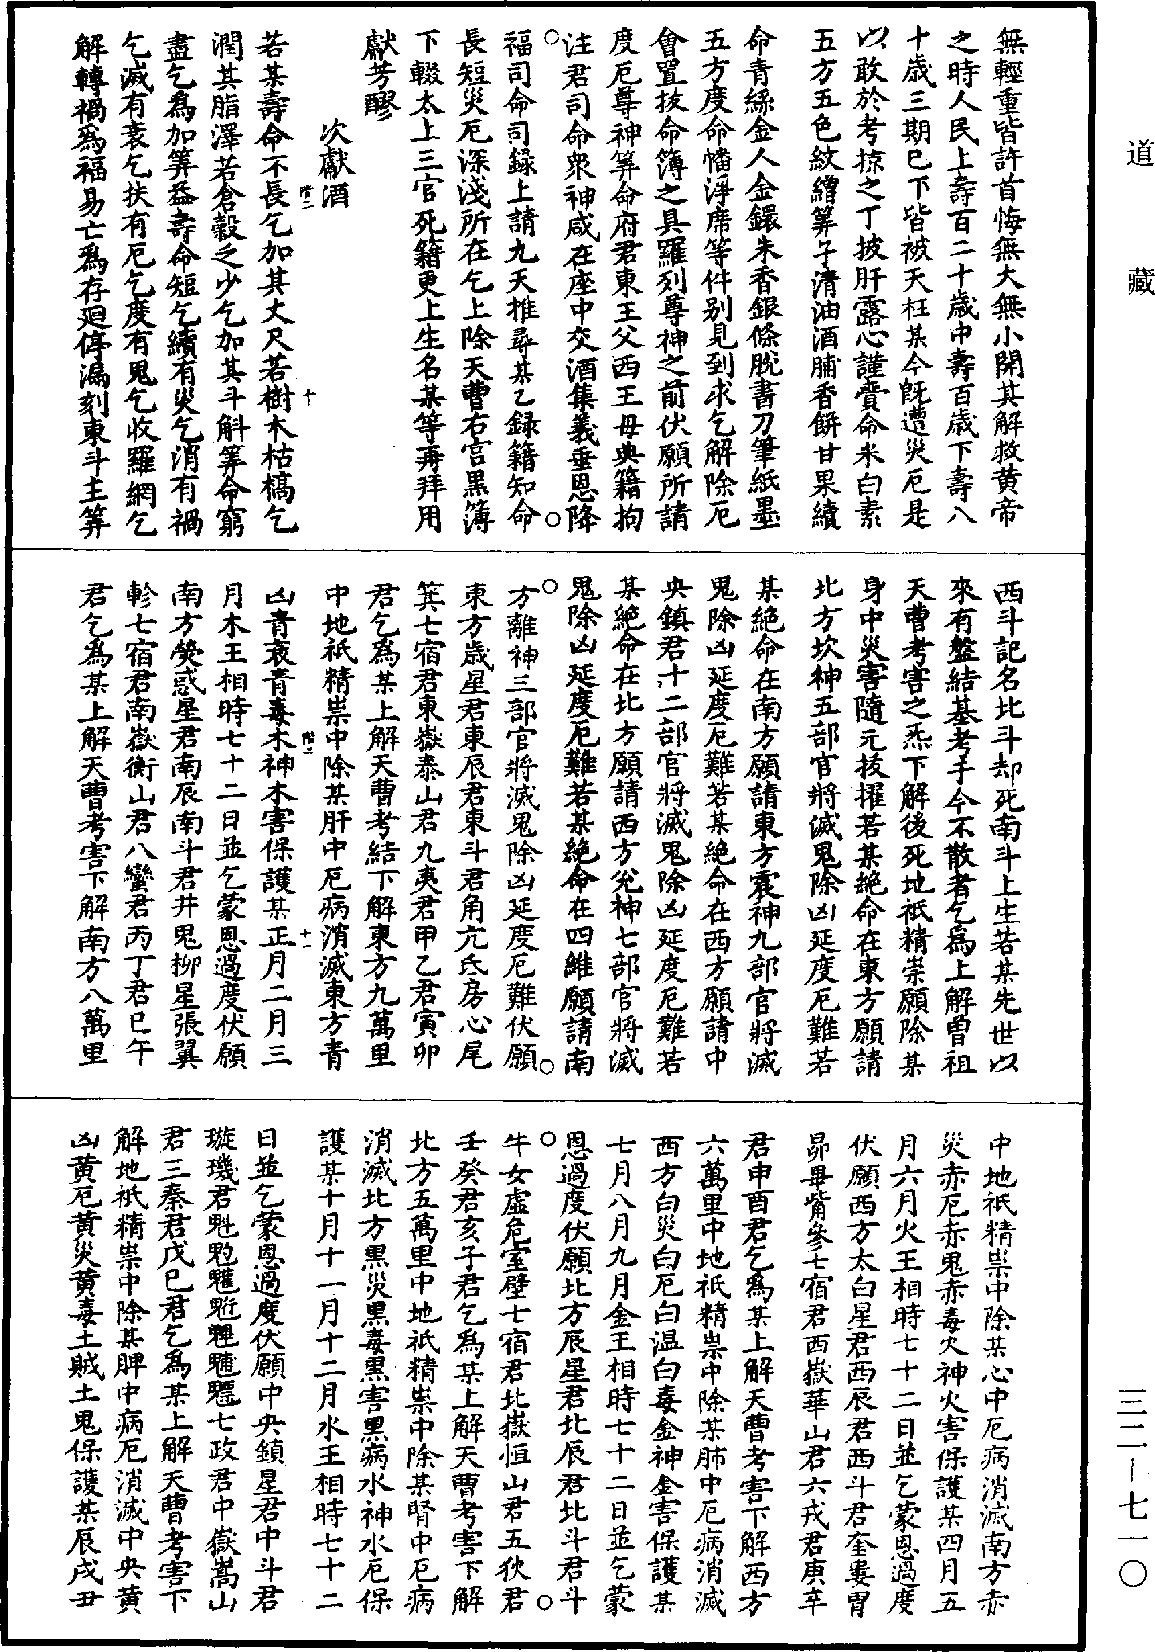 道藏
無輕重皆許首悔無大無小開其解救黃帝
之時人民上壽百二十歲中壽百歲下壽八
十歲三期已下皆被天枉某今旣遭災厄是
以敢於考掠之丁披肝露心謹賫命米白素
五方五色紋繒筭子清油酒脯香餅甘果續
命青絲金人金鐶朱香銀條脫書刀筆紙墨
五方度命幡淨席等件別見到求乞解除厄
會置拔命簿之具羅列尊神之前伏願所請
度厄尊神筭命府君東王父西王母典籍拘
注君司命衆神咸在座中交酒集羲垂恩降
福司命司錄上請九天推尋某乙錄籍知命
長短災厄深淺所在乞上除天曹右宫黑簿
下輟太上三官死籍更上生名某等再拜用
獻芳醪
次獻酒
若某壽命不長乞加其丈尺若樹木枯槁乞
潤其脂澤若倉穀乏少乞加其斗斛筭命窮
盡乞為加筭益壽命短乞續有災乞消有禍
乞滅有衰乞扶有厄乞度有鬼乞收羅網乞
解轉禍為福易亡為存廻停漏刻東斗主筭
西斗記名北斗却死南斗上生若某先世以
來有盤結基考于今不散者乞為上解曾祖
天曹考害之炁下解後死地祇精祟願除某
身中災害隨元拔擢若某絕命在東方願請
北方坎神五部官將滅鬼除凶延度厄難若
某絕命在南方願請東方震神九部官將滅
鬼除凶延度厄難若某絕命在西方願請中
央鎮君十二部官將滅鬼除凶延度厄難若
某絕命在北方願請西方兊神七部官將滅
鬼除凶延度厄難若某絕命在四維願請南
方離神三部官將滅鬼除凶延度厄難伏願
東方歲星君東辰君東斗君角亢氐房心尾
箕七宿君東嶽泰山君九夷君甲乙君寅卯
君乞為某上解天曹考結下解東方九萬里
中地祇精祟中除某肝中厄病消滅東方青
凶青衰青毒木神木害保護某正月二月三
月木王相時七十二日並乞蒙恩過度伏願
南方熒惑星君南辰南斗君井鬼柳星張翼
軫七宿君南嶽衡山君八蠻君丙丁君巳午
君乞為某上解天曹考害下解南方八萬里
中地祇精祟中除某心中厄病消滅南方赤
災赤厄赤鬼赤毒火神火害保護某四月五
月六月火王相時七十二日並乞蒙恩過度
伏願西方太白星君西辰君西斗君奎婁胃
昴畢觜參七宿君西嶽華山君六戎君庚辛
君申酉君乞為某上解天曹考害下解西方
六萬里中地祇精祟中除某肺中厄病消滅
西方白災白厄白溫白毒金神金害保護某
七月八月九月金王相時七十二日並乞蒙
恩過度伏願北方辰星君北辰君北斗君斗
牛女虛危室壁七宿君北嶽恒山君五狄君
壬癸君亥子君乞為某上解天曹考害下解
北方五萬里中地祇精祟中除某腎中厄病
消滅北方黑災黑毒黑害黑病水神水厄保
護某十月十一月十二月水王相時七十二
日並乞蒙恩過度伏願中央鎮星君中斗君
璇璣君魁𩲃䰢魓魒七政君中嶽嵩山
君三秦君戊已君乞為某上解天曹考害下
解地祇精祟中除某脾中病厄消滅中央黃
凶黃厄黃災黃毒土賊土鬼保護某辰戌丑
三二—七一〇